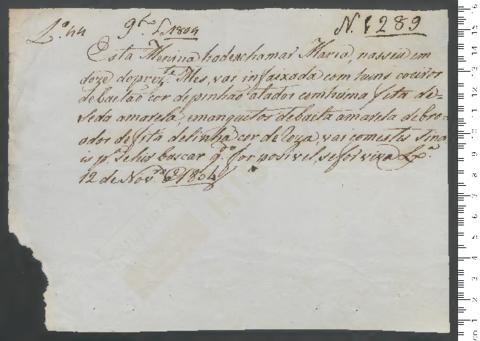 Lº 44 9bro 1804 N. 1289
Esta Menina hadeschamar Maria, nasseu em
doze do prezte Mes, vai infaixada com huns coeiros
debaetao cor depinhao atados com huma fita de
seda amarela, e manguitos debaeta amarela debro
ados de fita de linha cor de Roza, vai com estes sina
is pª Sehir buscar qdo for posivel, se for viva Lxª
12 de Novro de 1804